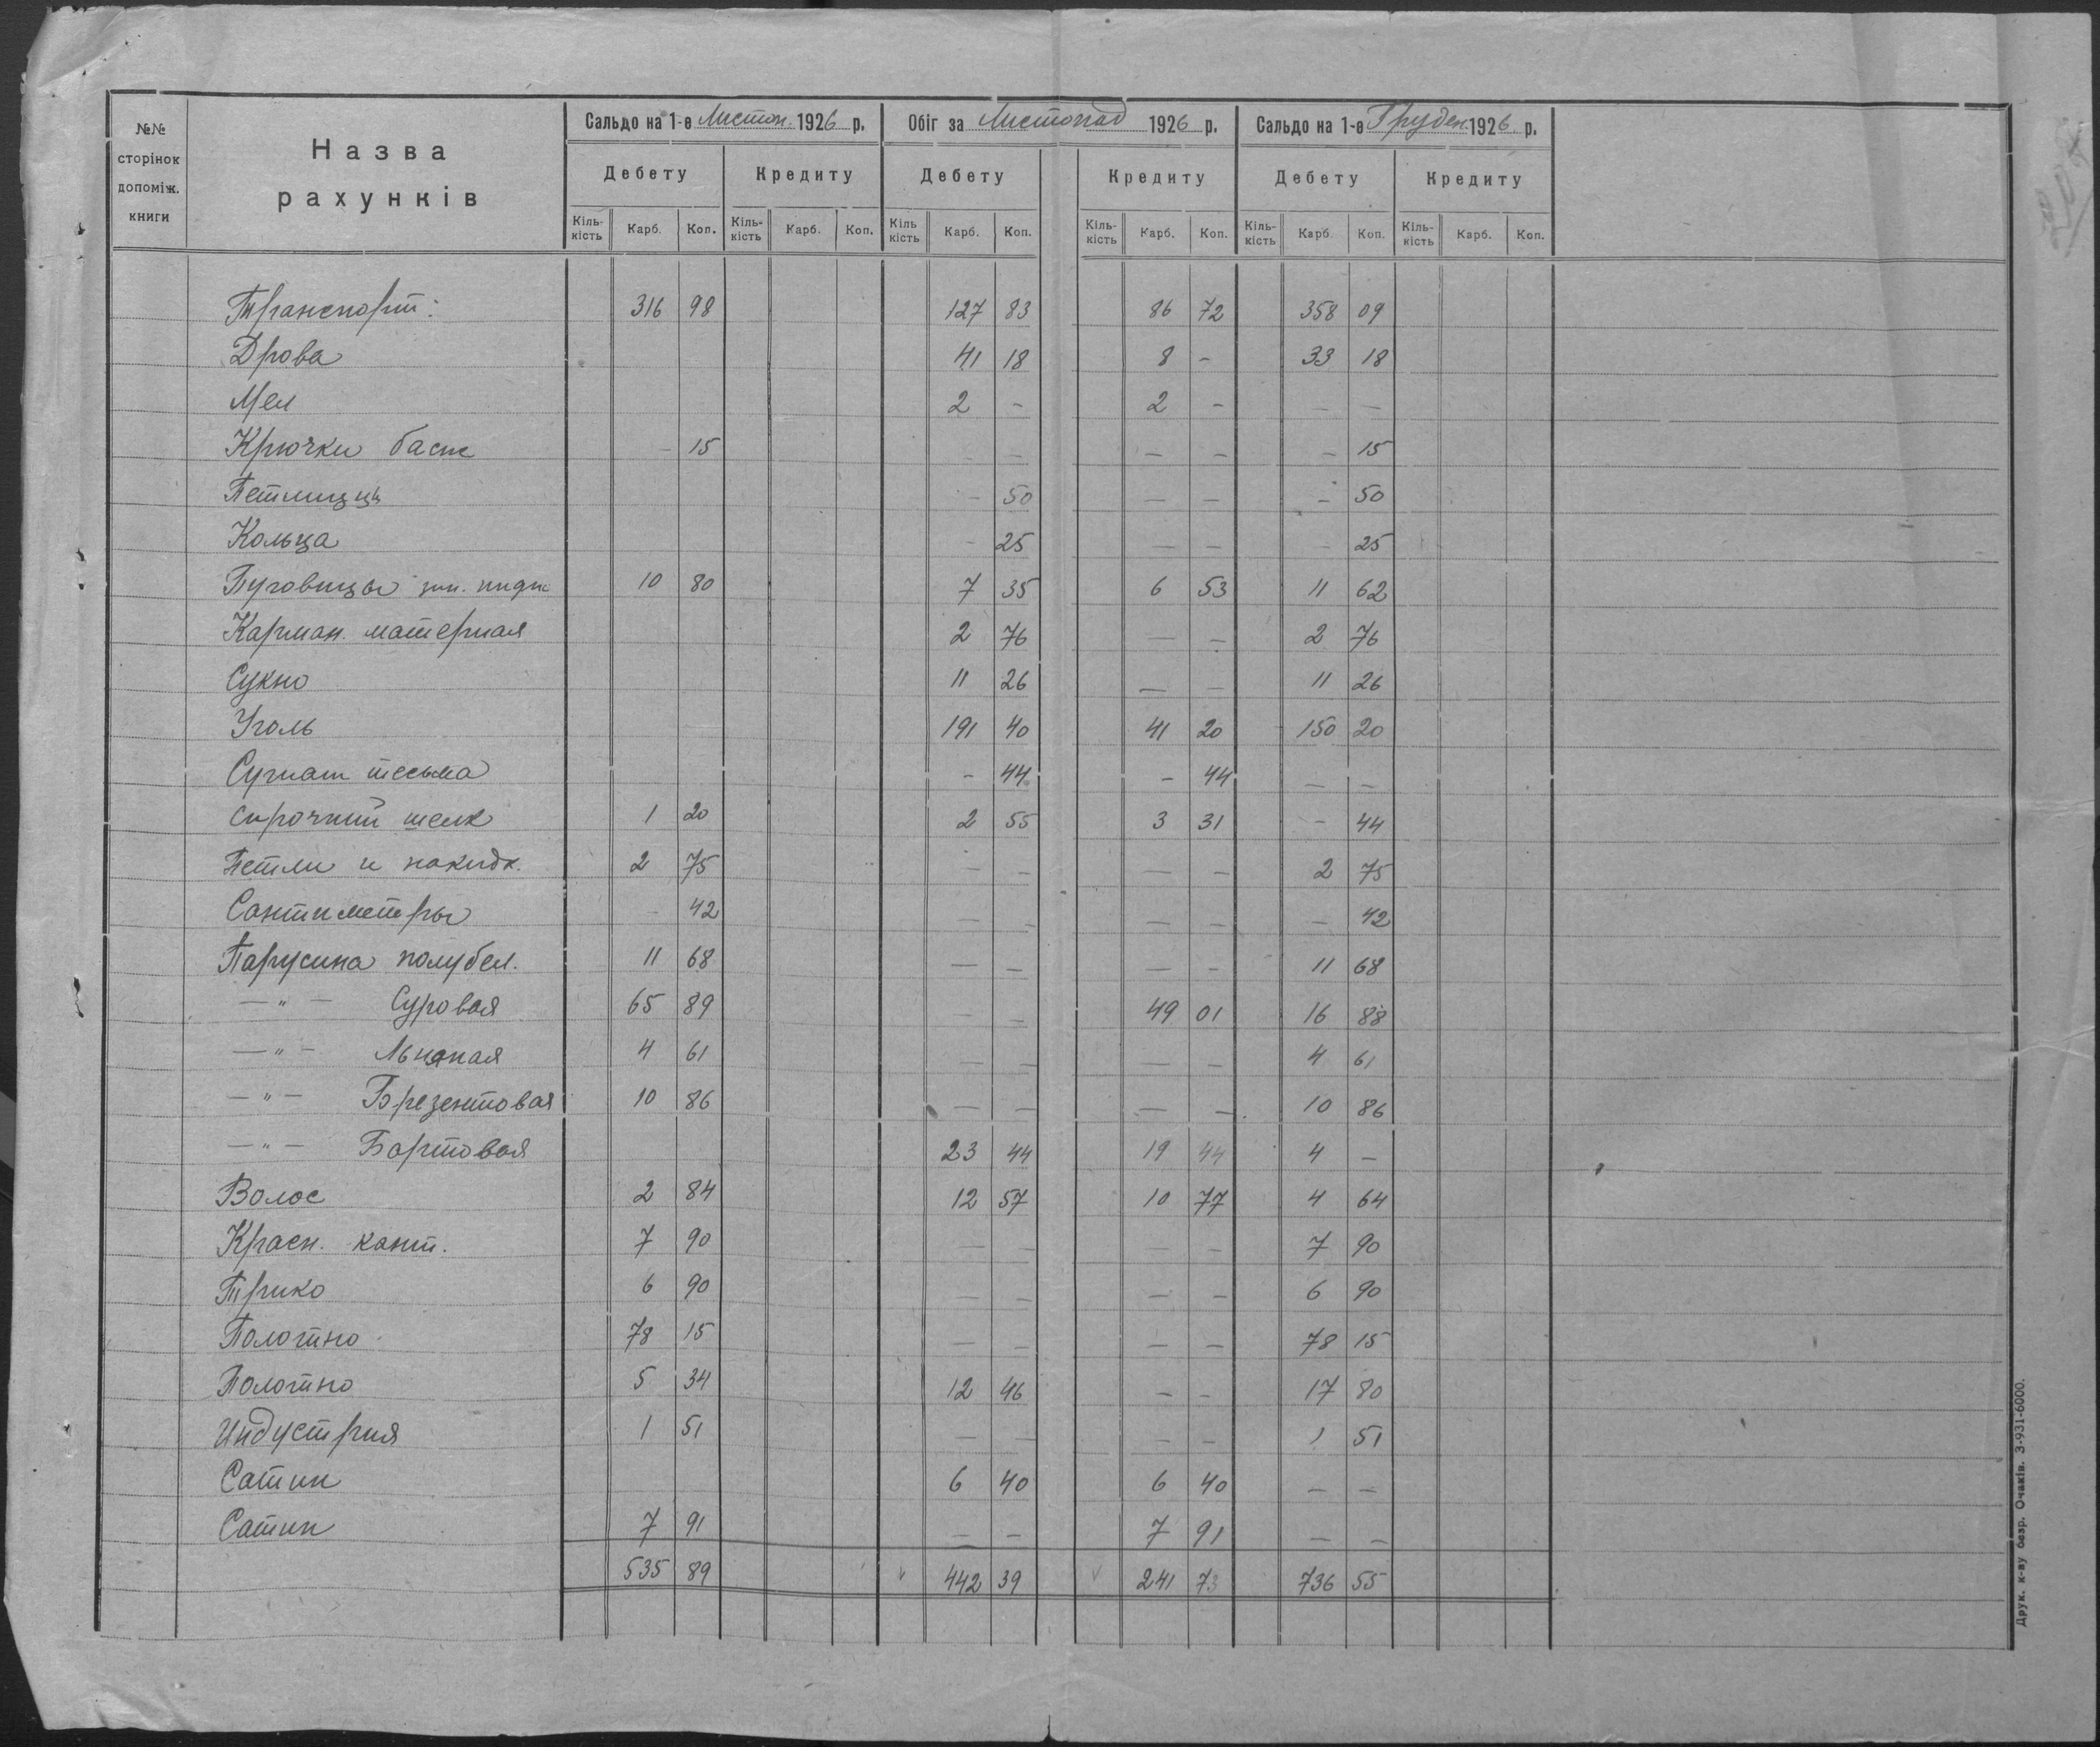 №№ сторінок допоміж. книги
Назва рахунків
Сальдо на 1-е Листоп. 1926 р.
Обіг за Листопад 1926 р.
Сальдо на 1-е Груден. 1926 р.
Дебету Кредиту Дебету Кредиту Дебету Кредиту
Кіль-кість Карб. Коп. Кіль-кість Карб. Коп. Кіль кість Карб. Коп. Кіль-кість Карб. Коп. Кіль-кість Карб. Коп. Кіль-кість Карб. Коп.
Транспорт: 316 98 127 83 86 72 358 09
Дрова 41 18 8 - 33 18
Мел 2 - 2 - - -
Крючки - 15 - - - - - 15
Петлицы - 50 - - - 50
Кольца - 25 - - - 25
Пуговицы 10 80 7 35 6 53 11 62
Карман. материал 2 76 - - 2 76
Сукно 11 26 - - 11 26
Уголь 191 40 41 20 150 20
тесьма - 44 - 44 - -
Строчный шелк 1 20 2 55 3 31 - 44
Петли и накидк. 2 75 - - - - 2 75
Сантиметры - 42 - - - - - 42
Парусина полубел. 11 68 - - - - 11 68
- " - Суровая 65 89 - - 49 01 16 88
- " - Льняная 4 61 - - - - 4 61
- " - Брезентовая 10 86 - - - - 10 86
- " - Бортовая 23 44 19 44 4 -
Волос 2 84 12 57 10 77 4 64
Красн. кант. 7 90 - - - - 7 90
Трико 6 90 - - - - 6 90
Полотно 78 15 - - - - 78 15
Полотно 5 34 12 46 - - 17 80
Индустрия 1 51 - - - - 1 51
Сатин 6 40 6 40 - -
Сатин 7 91 - - 7 91 - -
535 89 " 442 39 v 241 73 736 55
Друк. к-ву безр. Очаків. З-931-6000.